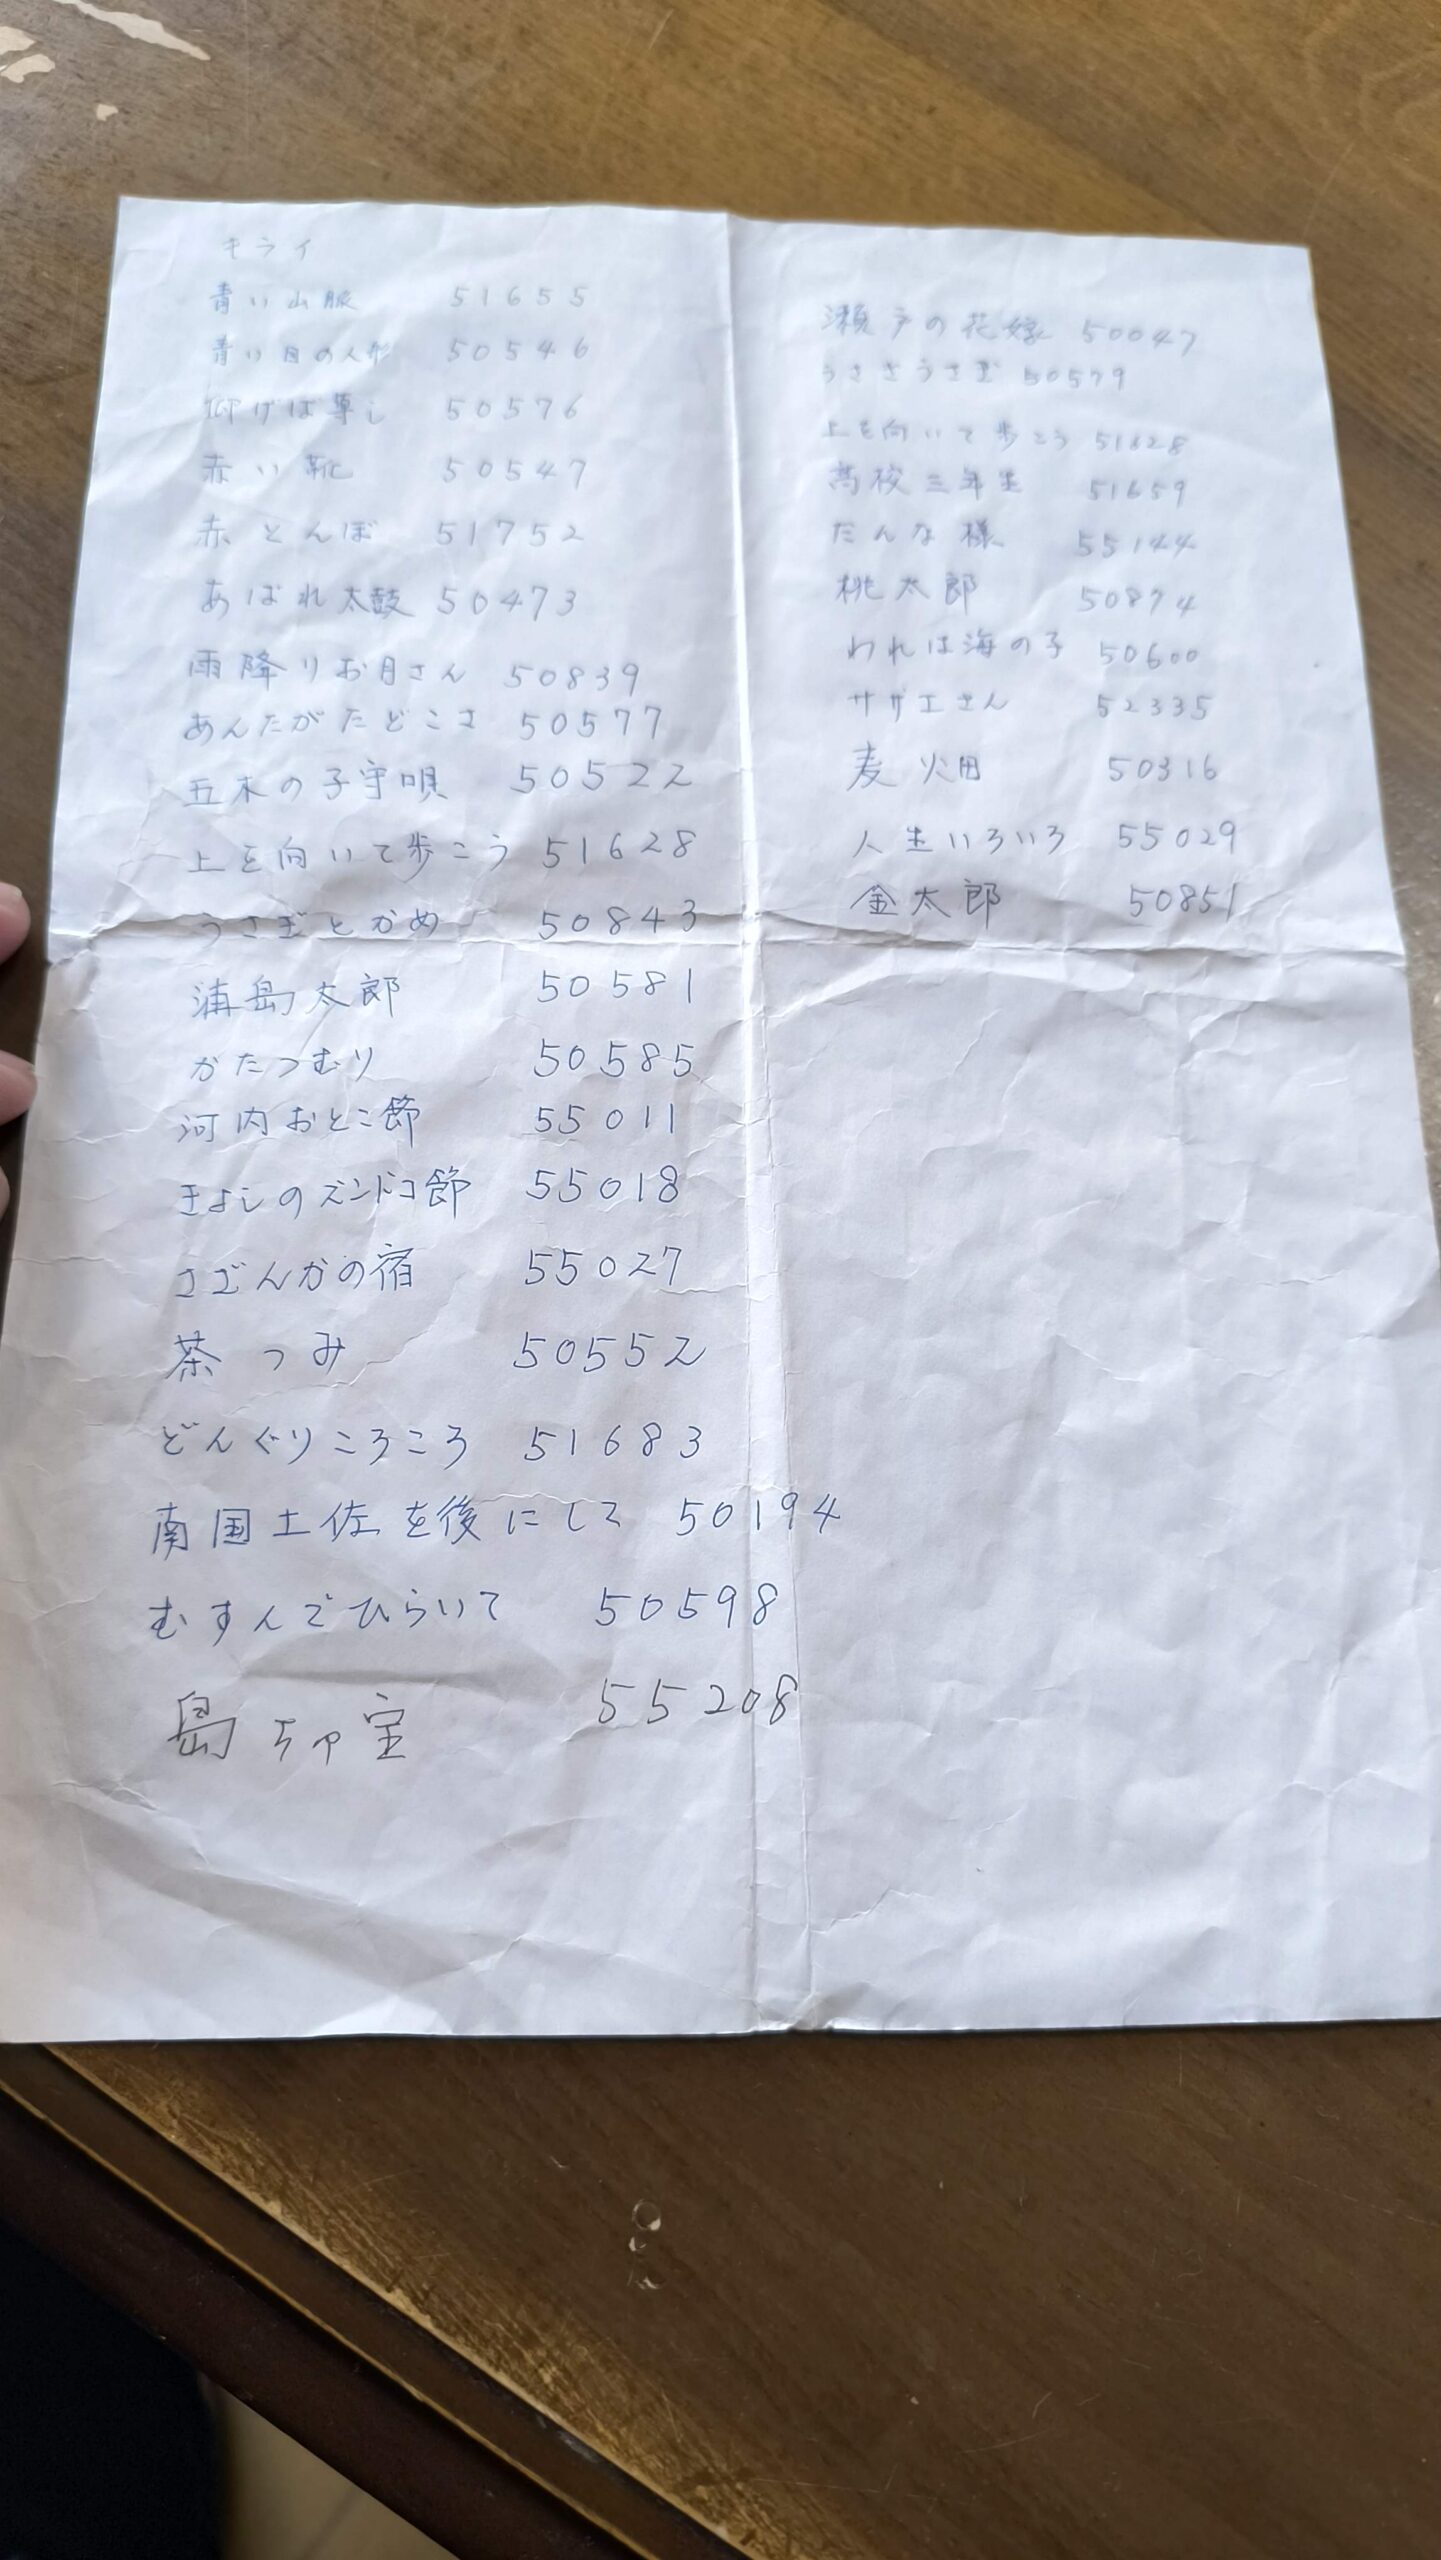 キライ
青い山脈 51655
青い目の人形 50546
仰げば尊し 50576
赤い靴 50547
赤とんぼ 51752
あばれ太鼓 50473
雨降りお月さん 50839
あんたがたどこさ 50577
五木の子守唄 50522
上を向いて歩こう 51628
うさぎとかめ 50843
浦島太郎 50581
かたつむり 50585
河内おとこ節 55011
きよしのズンドコ節 55018
さざんかの宿 55027
茶つみ 50552
どんぐりころころ 51683
南国土佐を後にして 50194
むすんでひらいて 50598
島ちゅ宝 55208
瀬戸の花嫁 50047
うさぎうさぎ 50579
上を向いて歩こう 51628
高校三年生 51659
だんな様 55144
桃太郎 50874
われは海の子 50600
サザエさん 52335
麦畑 50316
人生いろいろ 55029
金太郎 50851